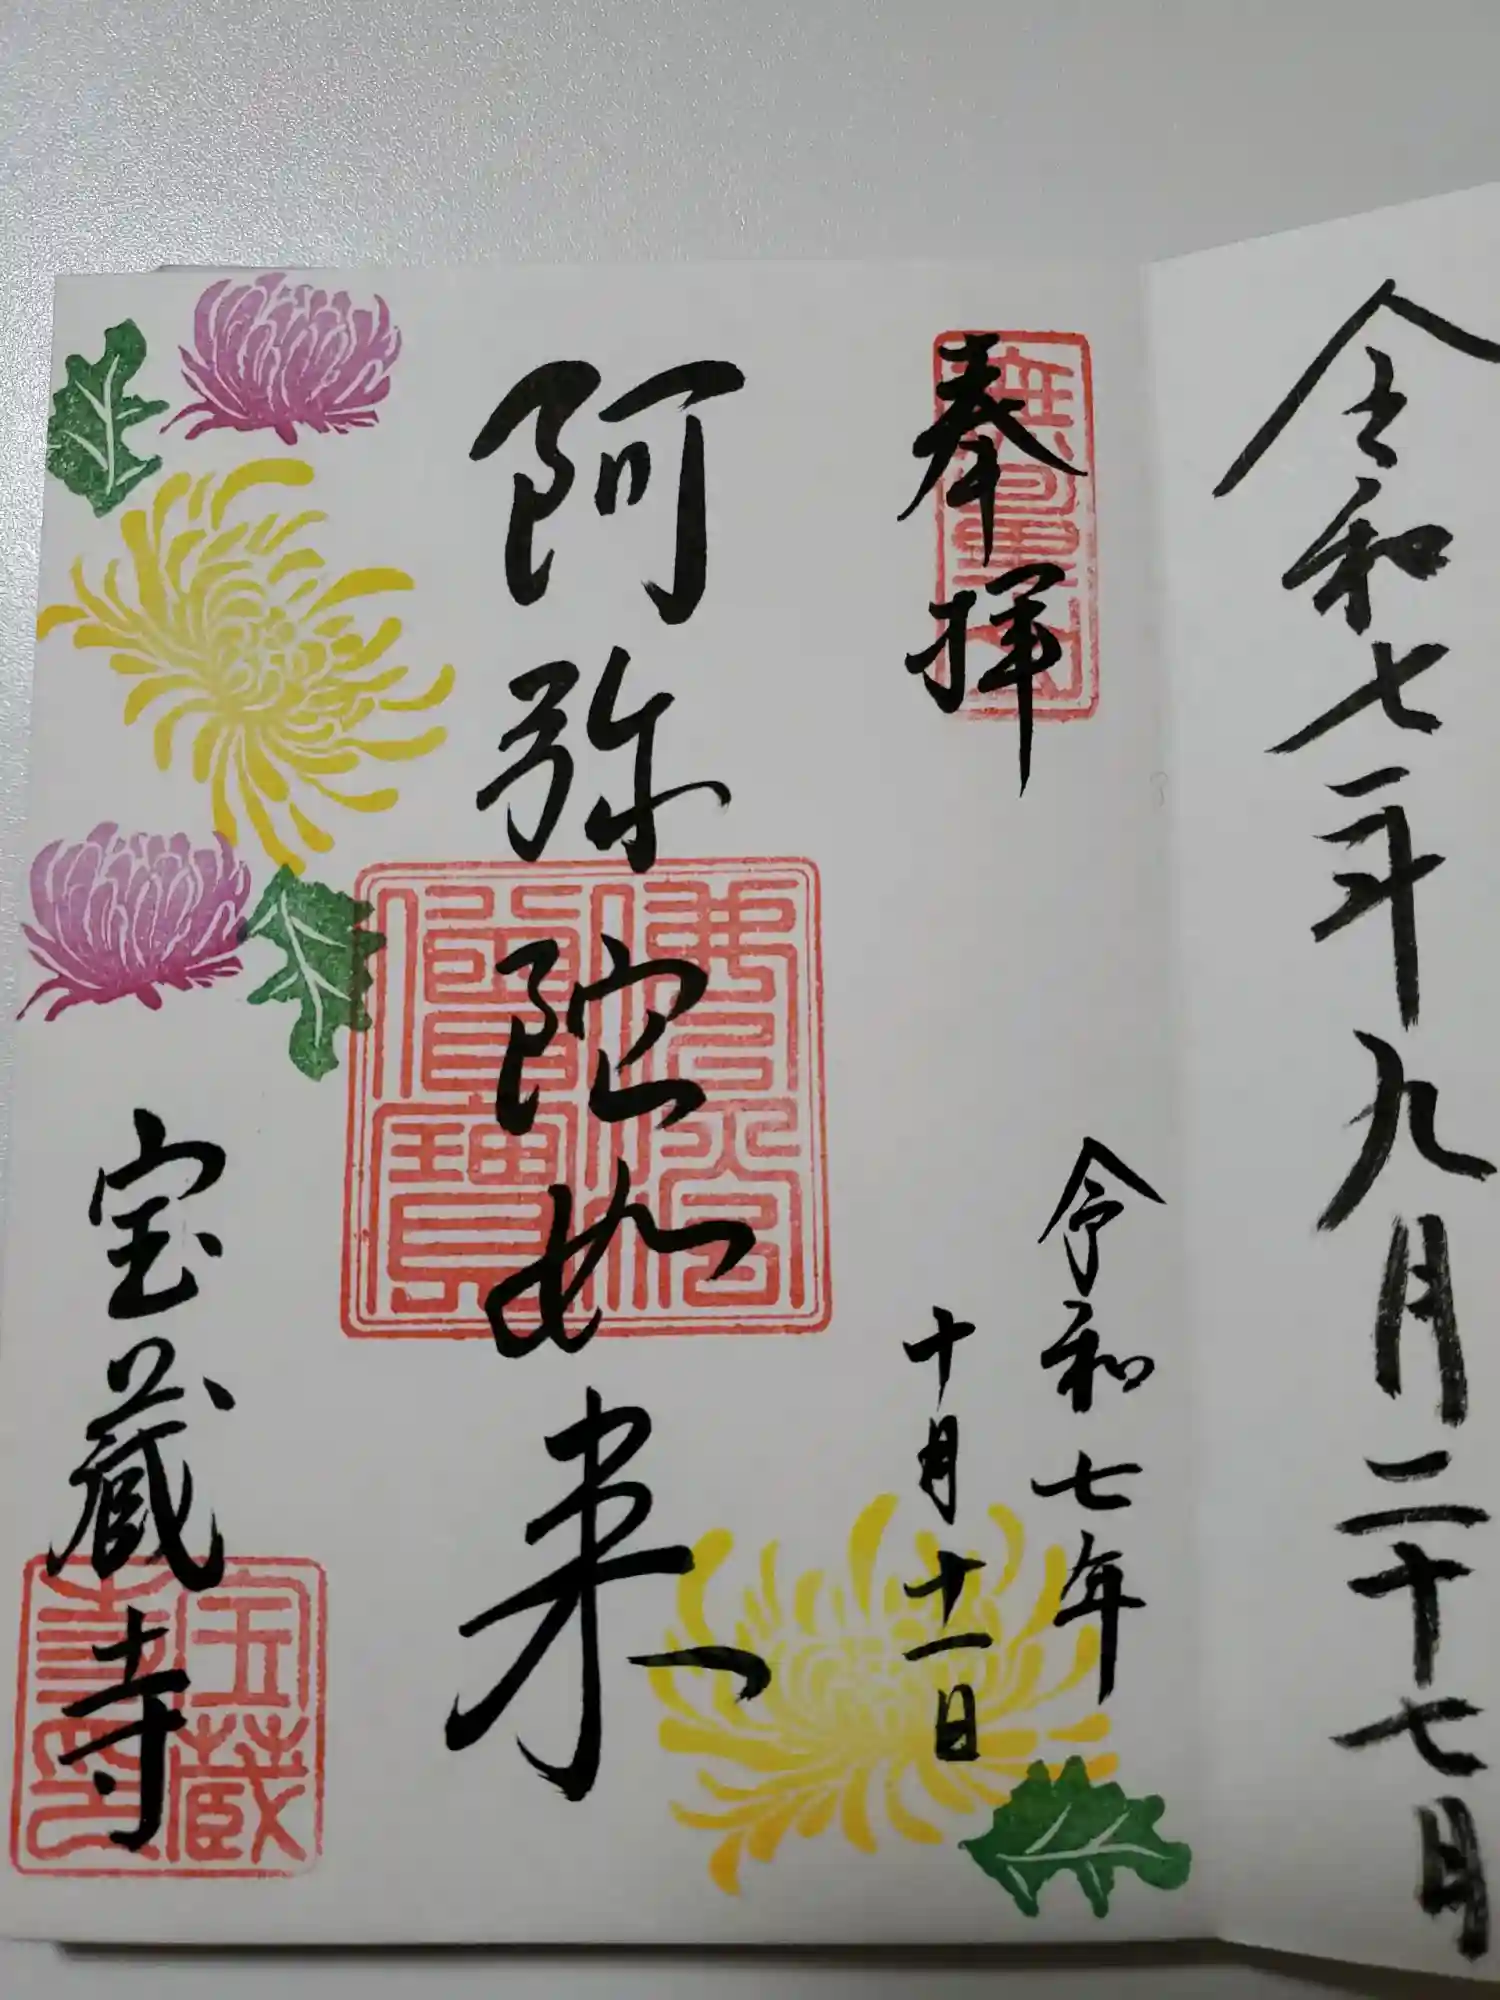 令和七年九月二十七日
奉拝
令和七年
十月十一日
阿弥陀如来
佛法僧寶
宝蔵寺
宝蔵寺印